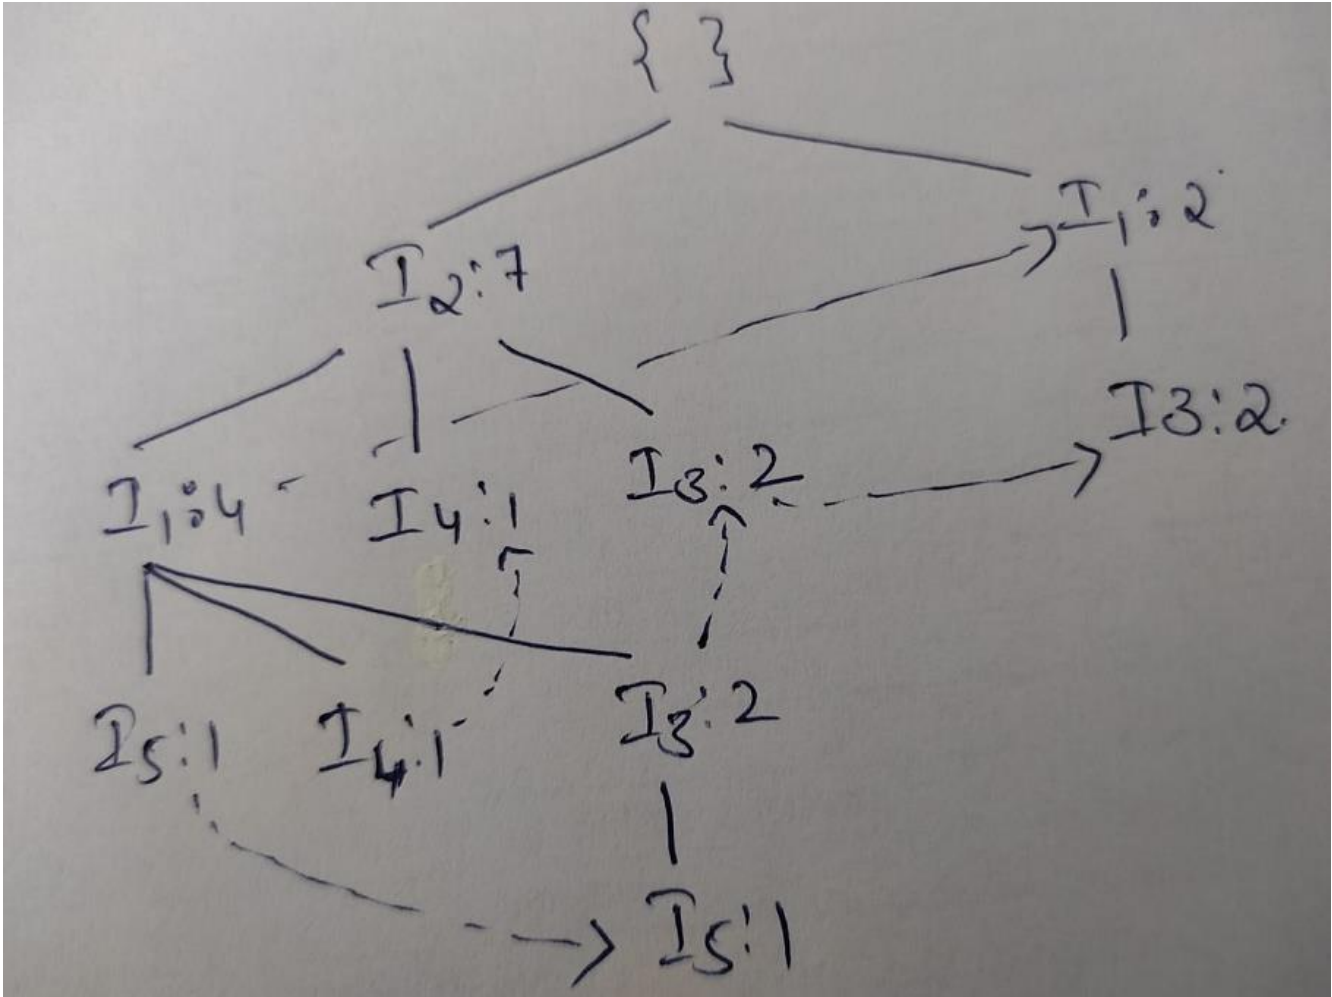 { }
I1:2
I2:7
I3:2
I1:4
I4:1
I3:2
I5:1
I4:1
I3:2
I5:1